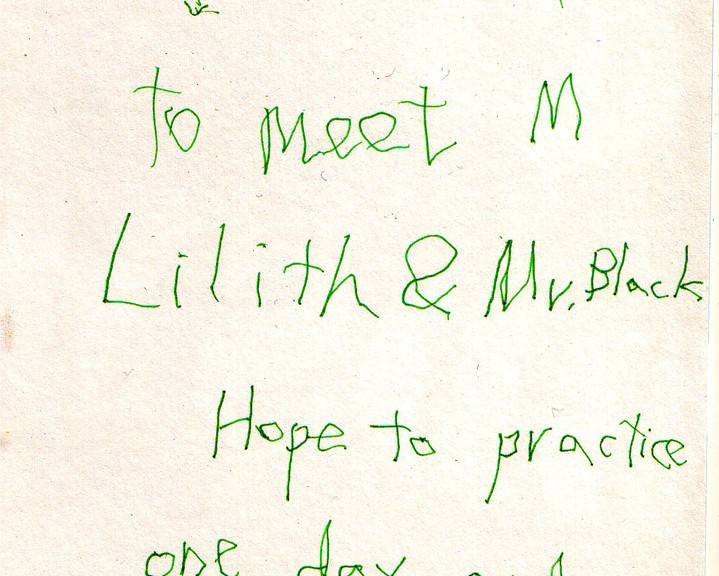 to meet M
Lilith & Mr. Black
Hope to practice
one day and